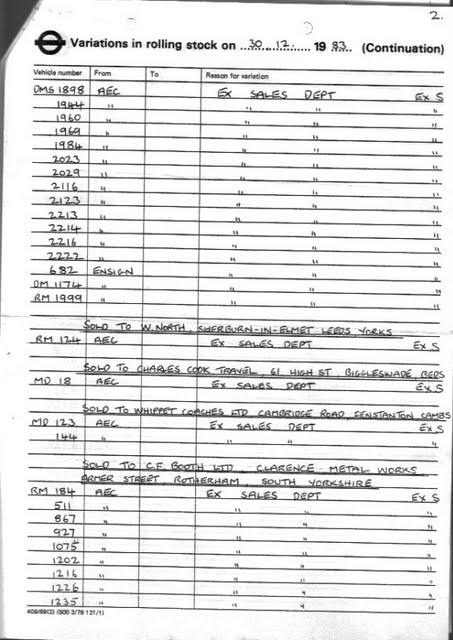 2.
Variations in rolling stock on 30.12. 1983. (Continuation)
Vehicle number From To Reason for variation
DMS 1898 AEC EX SALES DEPT EX S
1944 " " " "
1960 " " " "
1969 " " " "
1984 " " " "
2023 " " " "
2029 " " " "
2116 " " " "
2123 " " " "
2213 " " " "
2214 " " " "
2216 " " " "
2222 " " " "
682 ENSIGN " " "
DM 1174 " " " "
RM 1999 " " " "
SOLD TO W. NORTH, SHERBURN-IN-ELMET LEEDS, YORKS
RM 124 AEC EX SALES DEPT EX S
SOLD TO CHARLES COOK TRAVEL, 61 HIGH ST BIGGLESWADE, BEDS
MD 18 AEC EX SALES DEPT EX S
SOLD TO WHIPPET COACHES LTD CAMBRIDGE ROAD, FENSTANTON CAMBS
MD 123 AEC EX SALES DEPT EX S
144 " " " "
SOLD TO C.F. BOOTH LTD, CLARENCE METAL WORKS,
ARMER STREET ROTHERHAM, SOUTH YORKSHIRE
RM 184 AEC EX SALES DEPT EX S
511 " " " "
867 " " " "
927 " " " "
1075 " " " "
1202 " " " "
1216 " " " "
1226 " " " "
1235 " " " "
408/69(2) (500 3/79 121/1)